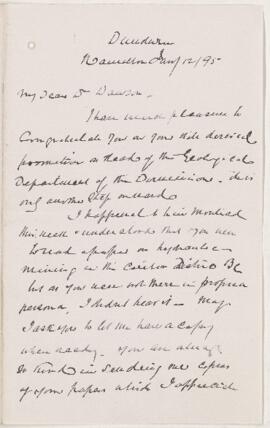 Dundurn
Hamilton Jany 12/95
My Dear Dr Dawson.
I have much pleasure to
Congratulate you on your well deserved
promotion as Head of the Geological
Department of the Dominion. it is
only another step onward
I happened to be in Montreal
this week & understood that you were
to read a paper on hydraulic
mining in the Cariboo District BC
but as you were not there in propria
persona, I didn't hear it — may
I ask you to let me have a copy
when ready. You are always
so kind in sending me copies
of your papers which I appreciate